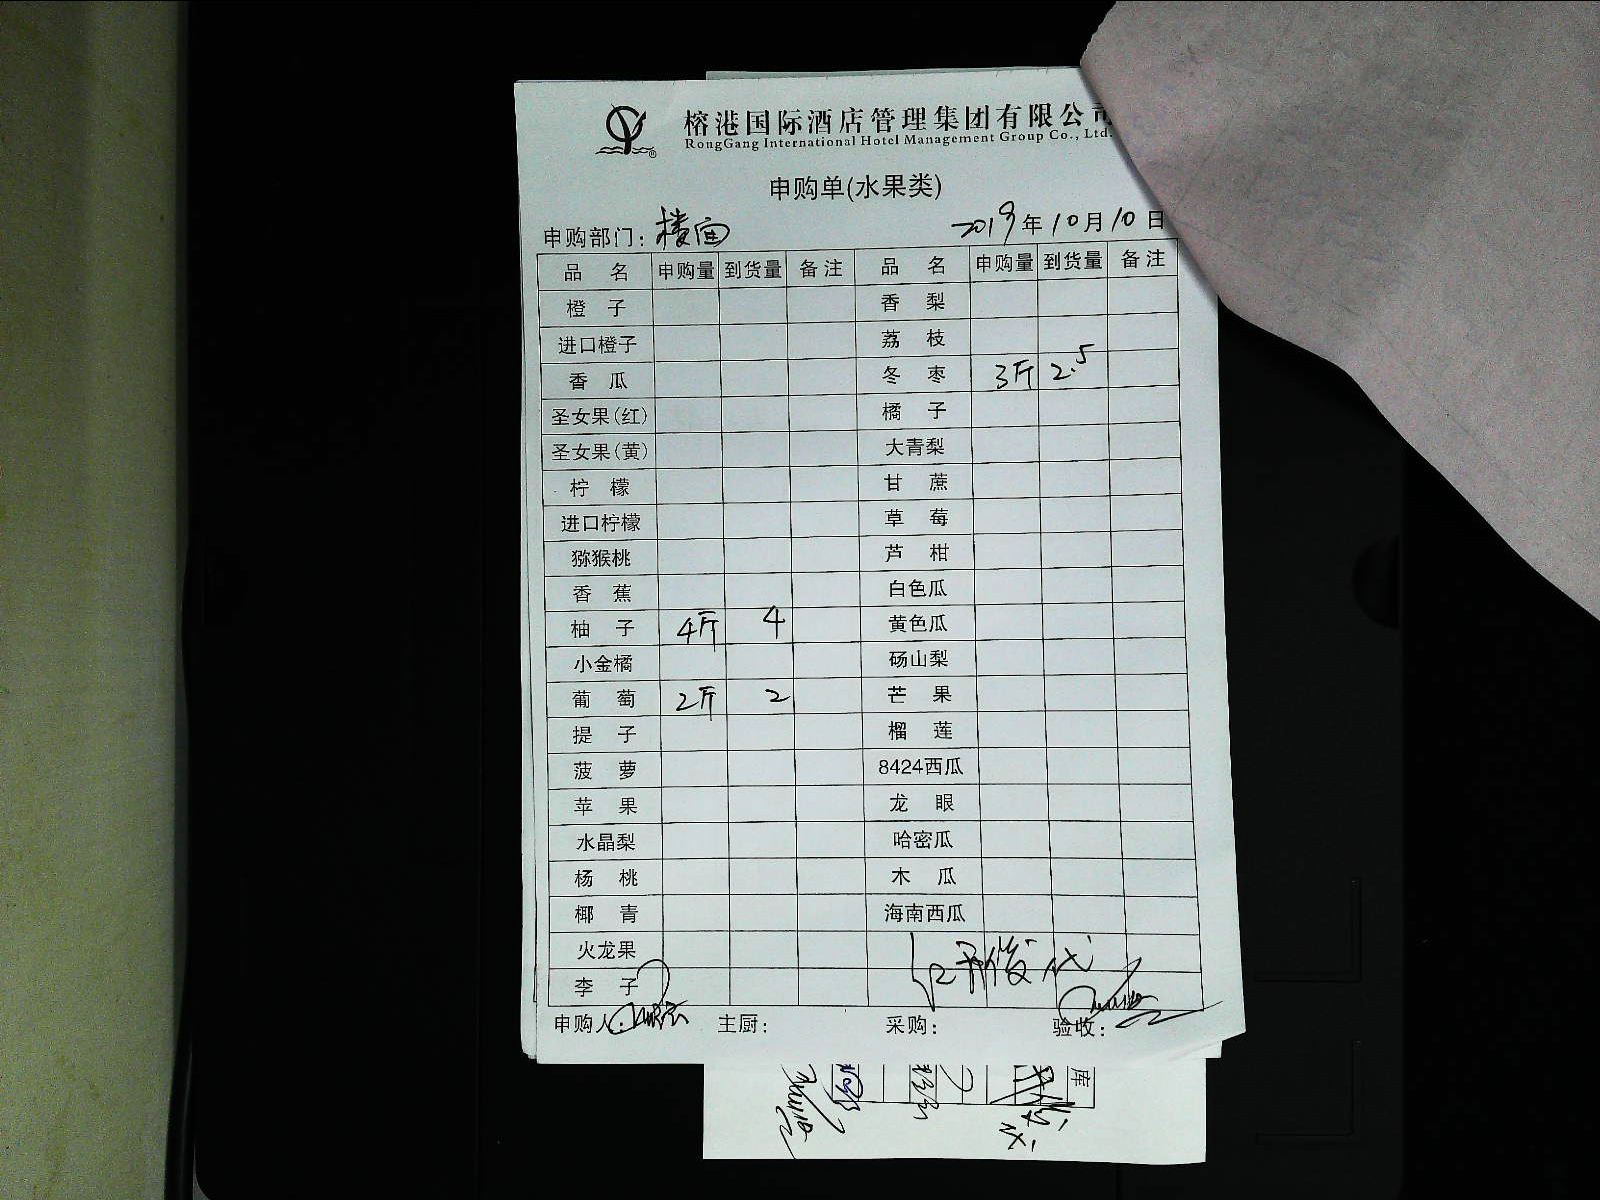 榕港国际酒店管理集团有限公司
RongGang International Hotel Management Group Co., Ltd.
申购单(水果类)
申购部门: 楼面 2019年10月10日
品名 申购量 到货量 备注 品名 申购量 到货量 备注
橙子 香梨
进口橙子 荔枝
香瓜 冬枣 3斤 2.5
圣女果(红) 橘子
圣女果(黄) 大青梨
柠檬 甘蔗
进口柠檬 草莓
猕猴桃 芦柑
香蕉 白色瓜
柚子 4斤 4 黄色瓜
小金橘 砀山梨
葡萄 2斤 2 芒果
提子 榴莲
菠萝 8424西瓜
苹果 龙眼
水晶梨 哈密瓜
杨桃 木瓜
椰青 海南西瓜
火龙果
李子
申购人: 主厨: 采购: 验收:
库